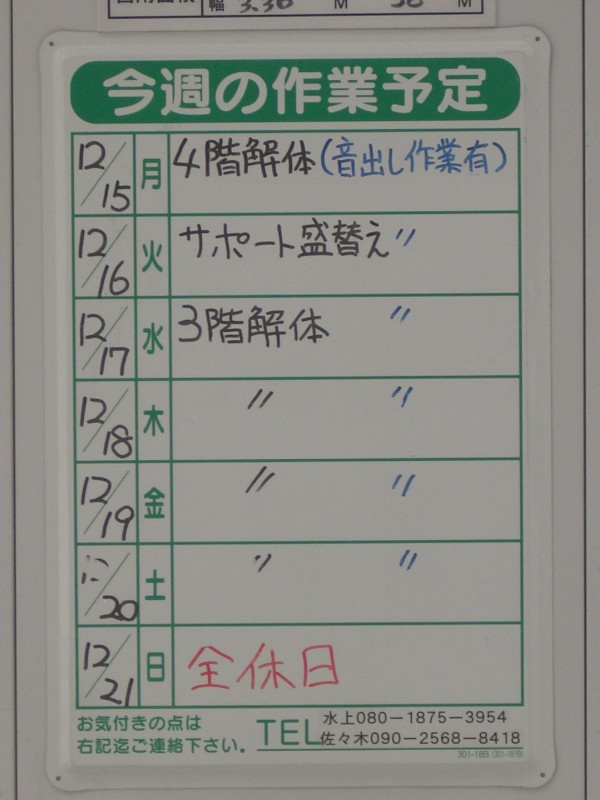 幅 3.36 M 56 M
今週の作業予定
12/15 月 4階解体(音出し作業有)
12/16 火 サポート盛替え 〃
12/17 水 3階解体 〃
12/18 木 〃 〃
12/19 金 〃 〃
12/20 土 〃 〃
12/21 日 全休日
お気付きの点は
右記迄ご連絡下さい。
TEL
水上080-1875-3954
佐々木090-2568-8418